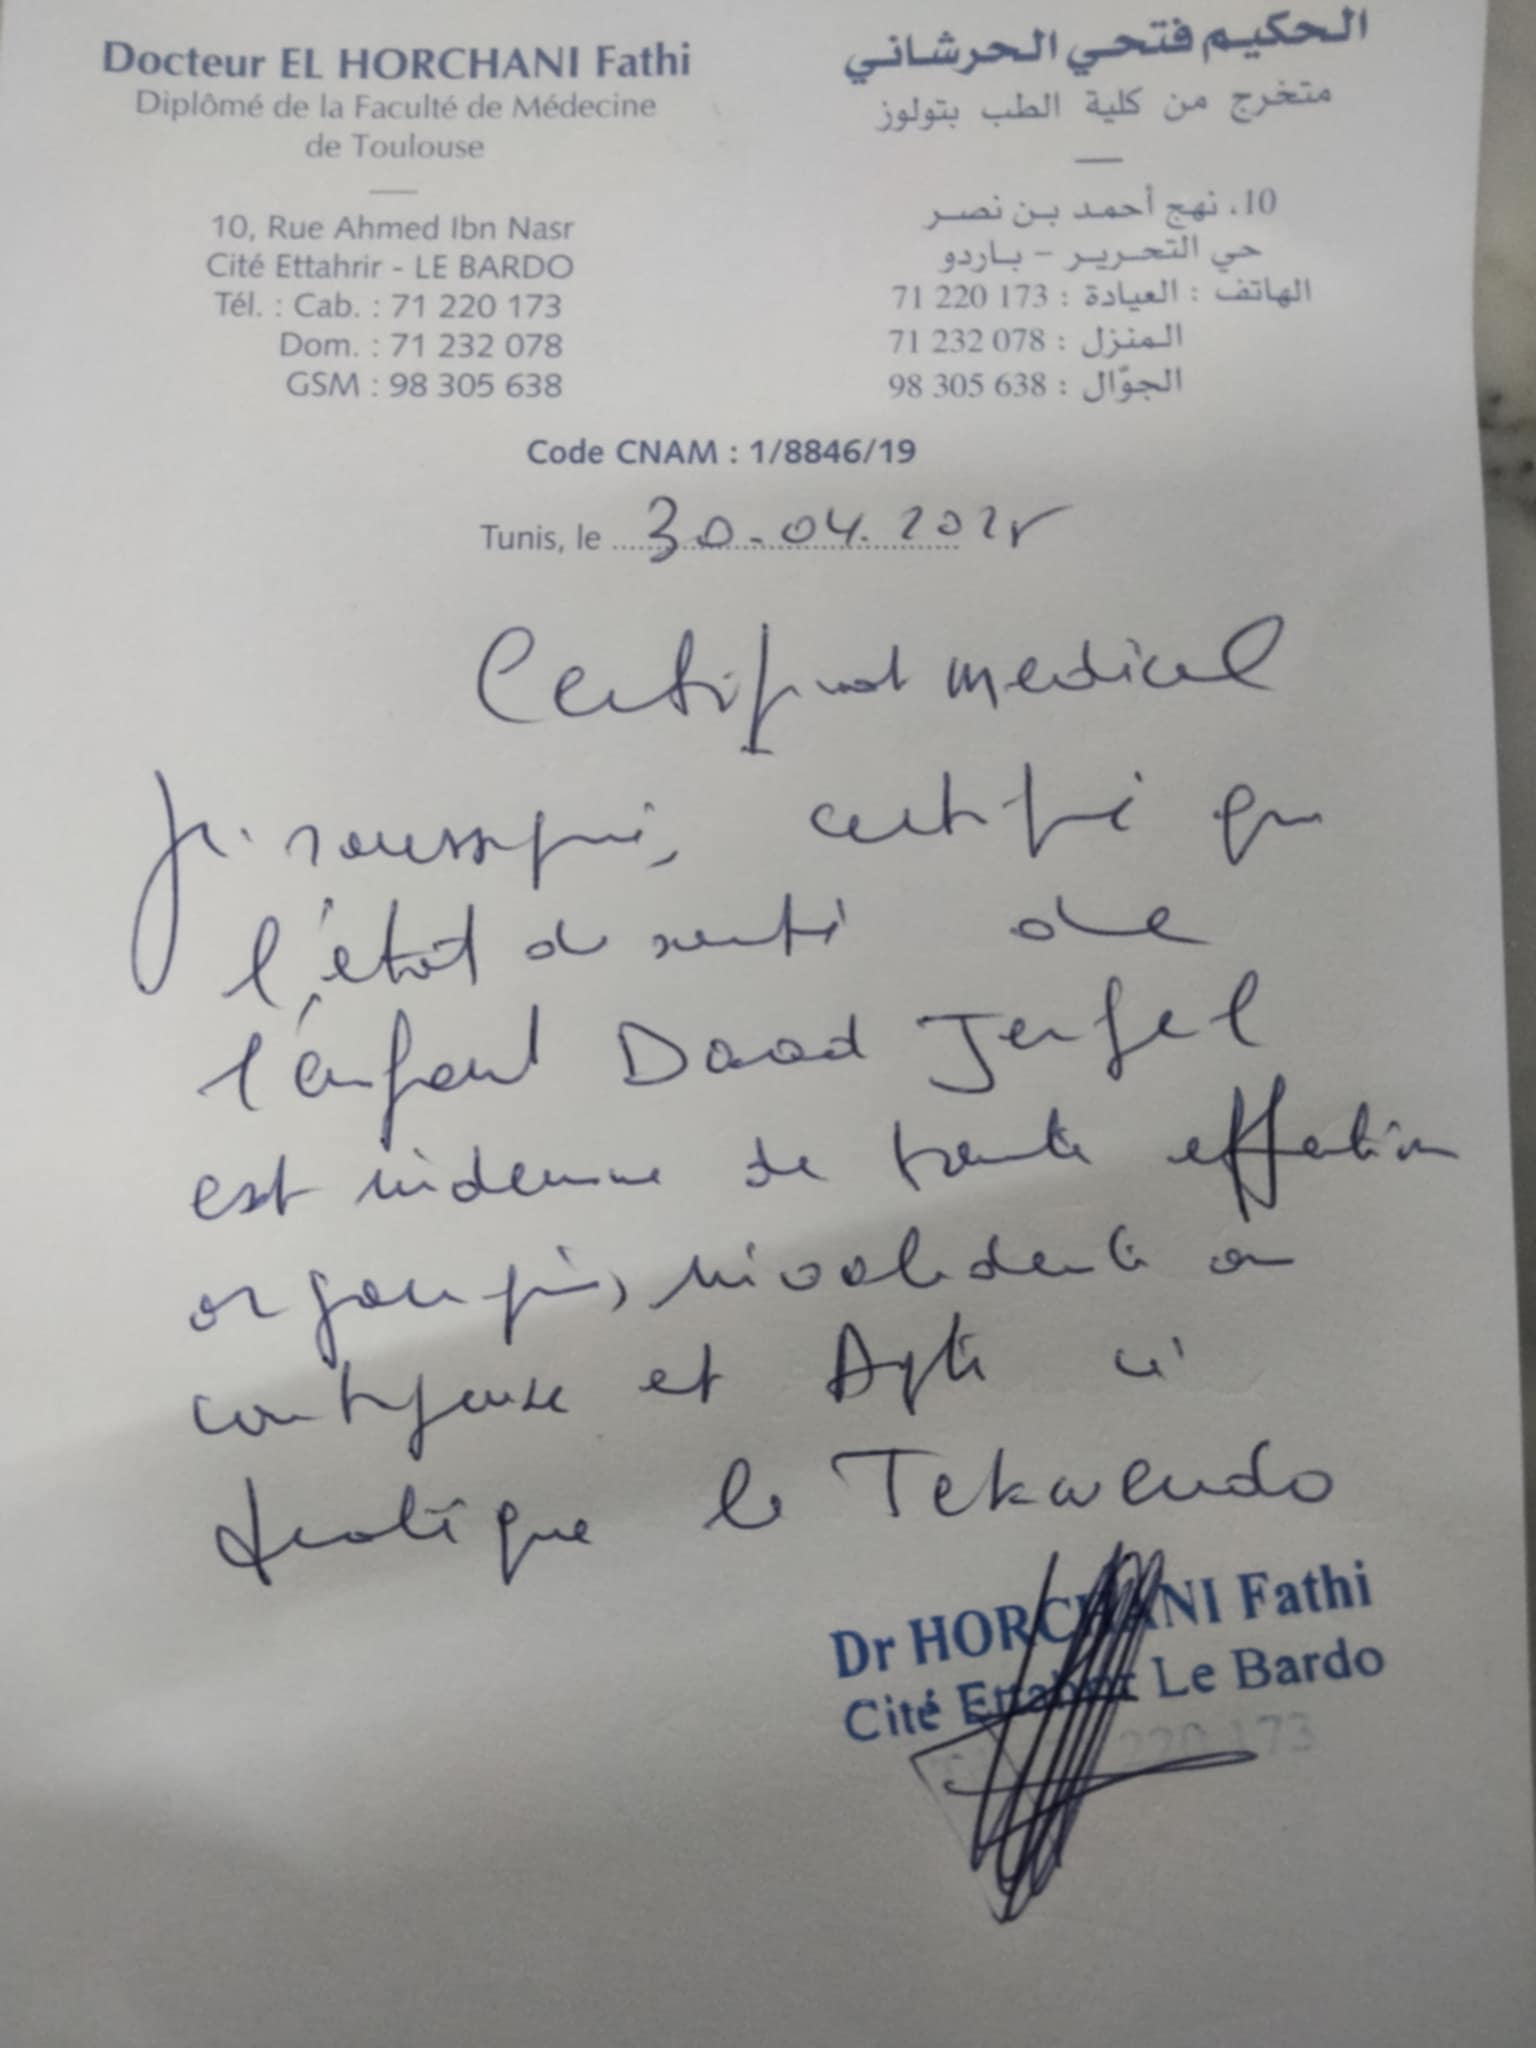 Docteur EL HORCHANI Fathi
Diplômé de la Faculté de Médecine
de Toulouse
10, Rue Ahmed Ibn Nasr
Cité Ettahrir - LE BARDO
Tél. : Cab. : 71 220 173
Dom. : 71 232 078
GSM : 98 305 638
الحكيم فتحي الحرشاني
متخرج من كلية الطب بتولوز
10، نهج أحمد بن نصر
حي التحرير - باردو
الهاتف : العيادة : 71 220 173
المنزل : 71 232 078
الجوّال : 98 305 638
Code CNAM : 1/8846/19
Tunis, le 30-04.2025
Certificat medical
Je soussigné, certifié que
l'état de santé de
l'enfant Daod Jerfel
est indemne de toute affection
organique, invalidante ou
contagieuse et Apte à
pratique le Tekwendo
Dr HORCHANI Fathi
Cité Ettahrir Le Bardo
220 173